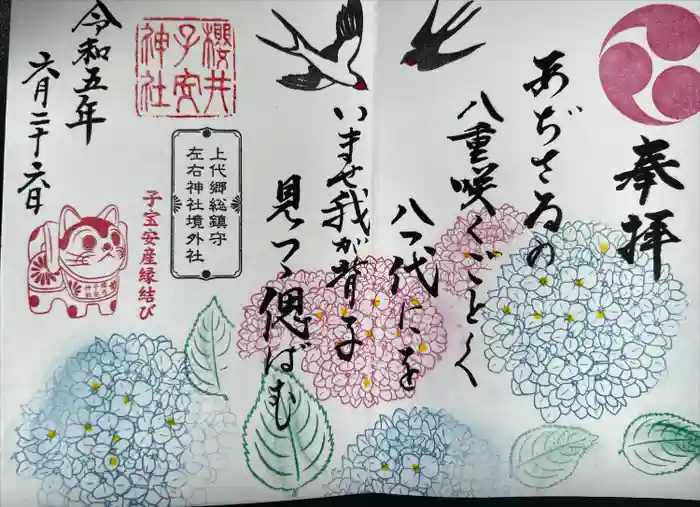 奉拝
あぢさゐの
八重咲くごとく
八つ代にを
いませ我が背子
見つゝ偲ばむ
櫻井
子安
神社
上代郷総鎮守
左右神社境外社
子宝安産縁結び
令和五年
六月二十六日